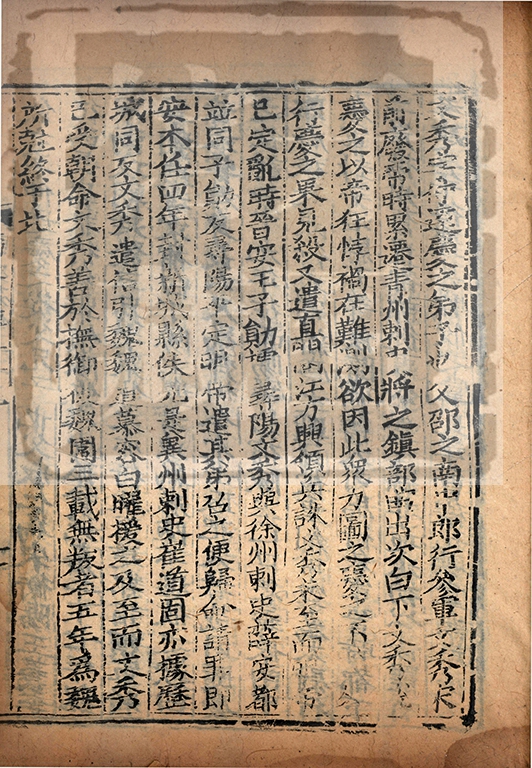 文秀字仲遠慶之弟子也父邵之南中郎行參軍文秀宋
前廢帝時累遷青州刺史將之鎮部曲出次白下文秀說
慶之以帝狂悖禍在難測欲因此眾力圖之慶之不從
行慶之果見殺又遣直閤江方興領兵誅文秀未至而明帝
已定亂時晉安王子勛據尋陽文秀與徐州刺史薛安都
並同子勛反尋陽平定明帝遣其弟召之便歸命請罪即
安本任四年封新城縣侯先是冀州刺史崔道固亦據歷
城同反文秀遣信引魏魏遣慕容白曜援之及至而文秀
已受朝命文秀善於撫御被魏圍三載無叛者五年為魏
所剋終于北